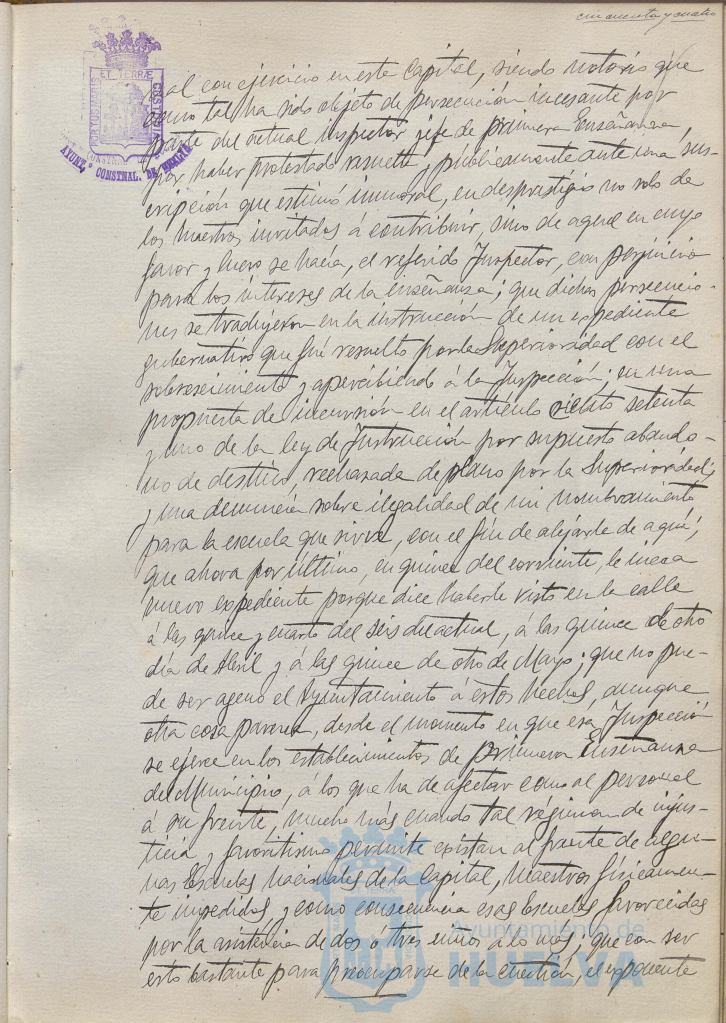 cincuenta y cuatro
PORTUS MARIS ET TERRÆ CUSTODIA
AYUNT.º CONSTNAL. DE HUELVA
al con ejercicio en este Capital, siendo notorio que
como tal ha sido objeto de persecución incesante por
parte del actual inspector jefe de primera Enseñanza,
por haber protestado resuelta y públicamente ante una sus-
cripción que estimó inmoral, en desprestigio no solo de
los Maestros invitados á contribuir, sino de aquel en cuyo
favor y lucro se hacía, el referido Inspector, con perjuicio
para los intereses de la enseñanza; que dichas persecucio-
nes se tradujeron en la instrucción de un expediente
gubernativo que fué resuelto por la Superioridad con el
sobreseimiento y apercibiendo á la Inspección; en una
propuesta de incursión en el artículo ciento setenta
y uno de la ley de Instrucción por supuesto abando-
no de destino, rechazada de plano por la Superioridad;
y una denuncia sobre ilegalidad de mi nombramiento
para la escuela que sirve, con el fin de alejarle de aquí;
que ahora por último, en quince del corriente, le incoa
nuevo expediente porque dice haberle visto en la calle
á las quince y cuarto del seis del actual, á las quince de otro
día de Abril y á las quince de otro de Mayo; que no pue-
de ser ageno el Ayuntamiento á estos hechos, aunque
otra cosa parezca, desde el momento en que esa Inspección
se ejerce en los establecimientos de primera Enseñanza
del Municipio, á los que ha de afectar como al personal
á su frente, mucho más cuando tal régimen de injus-
ticia y favoritismo permite existan al frente de algu-
nas Escuelas Nacionales de la Capital, Maestros físicamen-
te impedidos, y como consecuencia esas Escuelas favorecidas
por la asistencia de dos ó tres niños á lo más; que con ser
esto bastante para preocuparse de la cuestión, el exponente
Ayuntamiento de
HUELVA